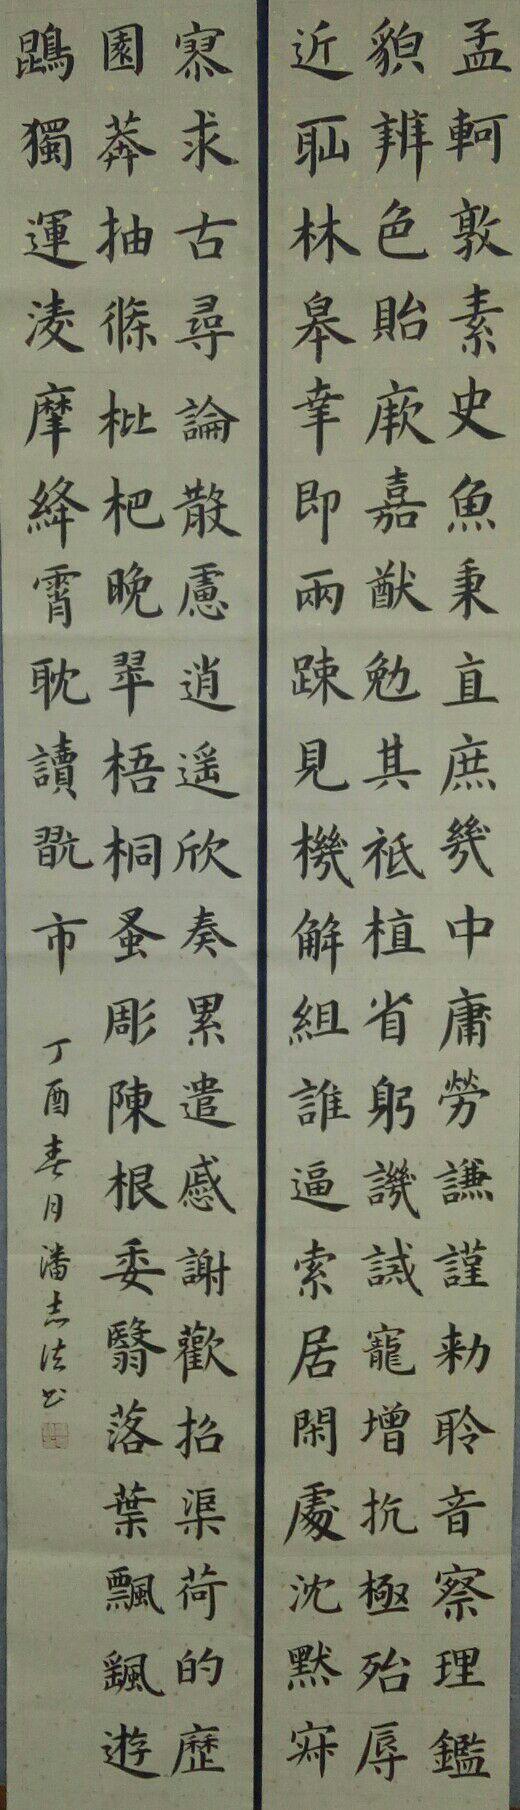 孟軻敦素史魚秉直庶幾中庸勞謙謹勑聆音察理鑑
貌辨色貽厥嘉猷勉其祗植省躬譏誡寵增抗極殆辱
近恥林皋幸即兩疎見機解組誰逼索居閑處沈默寂
寥求古尋論散慮逍遥欣奏累遣慼謝歡招渠荷的歷
園莽抽條枇杷晚翠梧桐蚤彫陳根委翳落葉飄颻遊
鵾獨運淩摩絳霄耽讀翫市
丁酉春月潘志法书